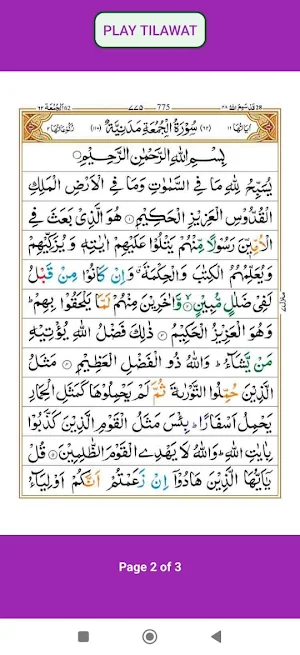 PLAY TILAWAT
الجمعة ٦٢
775
قد سمع الله ٢٨
اٰیَاتُهَا ١١
(٦٢) سُوْرَةُ الْجُمُعَةِ مَدَنِیَّةٌ (١١٠)
رُكُوْعَاتُهَا ٢
بِسْمِ اللّٰهِ الرَّحْمٰنِ الرَّحِیْمِ
یُسَبِّحُ لِلّٰهِ مَا فِی السَّمٰوٰتِ وَمَا فِی الْاَرْضِ الْمَلِكِ
الْقُدُّوْسِ الْعَزِیْزِ الْحَكِیْمِ ١ هُوَ الَّذِیْ بَعَثَ فِی
الْاُمِّیّٖنَ رَسُوْلًا مِّنْهُمْ یَتْلُوْا عَلَیْهِمْ اٰیٰتِهٖ وَیُزَكِّیْهِمْ
وَیُعَلِّمُهُمُ الْكِتٰبَ وَالْحِكْمَةَ وَاِنْ كَانُوْا مِنْ قَبْلُ
لَفِیْ ضَلٰلٍ مُّبِیْنٍ ٢ وَّاٰخَرِیْنَ مِنْهُمْ لَمَّا یَلْحَقُوْا بِهِمْ
وَهُوَ الْعَزِیْزُ الْحَكِیْمُ ٣ ذٰلِكَ فَضْلُ اللّٰهِ یُؤْتِیْهِ
مَنْ یَّشَآءُ وَاللّٰهُ ذُو الْفَضْلِ الْعَظِیْمِ ٤ مَثَلُ
الَّذِیْنَ حُمِّلُوا التَّوْرٰىةَ ثُمَّ لَمْ یَحْمِلُوْهَا كَمَثَلِ الْحِمَارِ
یَحْمِلُ اَسْفَارًا بِئْسَ مَثَلُ الْقَوْمِ الَّذِیْنَ كَذَّبُوْا
بِاٰیٰتِ اللّٰهِ وَاللّٰهُ لَا یَهْدِی الْقَوْمَ الظّٰلِمِیْنَ ٥ قُلْ
یٰۤاَیُّهَا الَّذِیْنَ هَادُوْۤا اِنْ زَعَمْتُمْ اَنَّكُمْ اَوْلِیَآءُ
Page 2 of 3